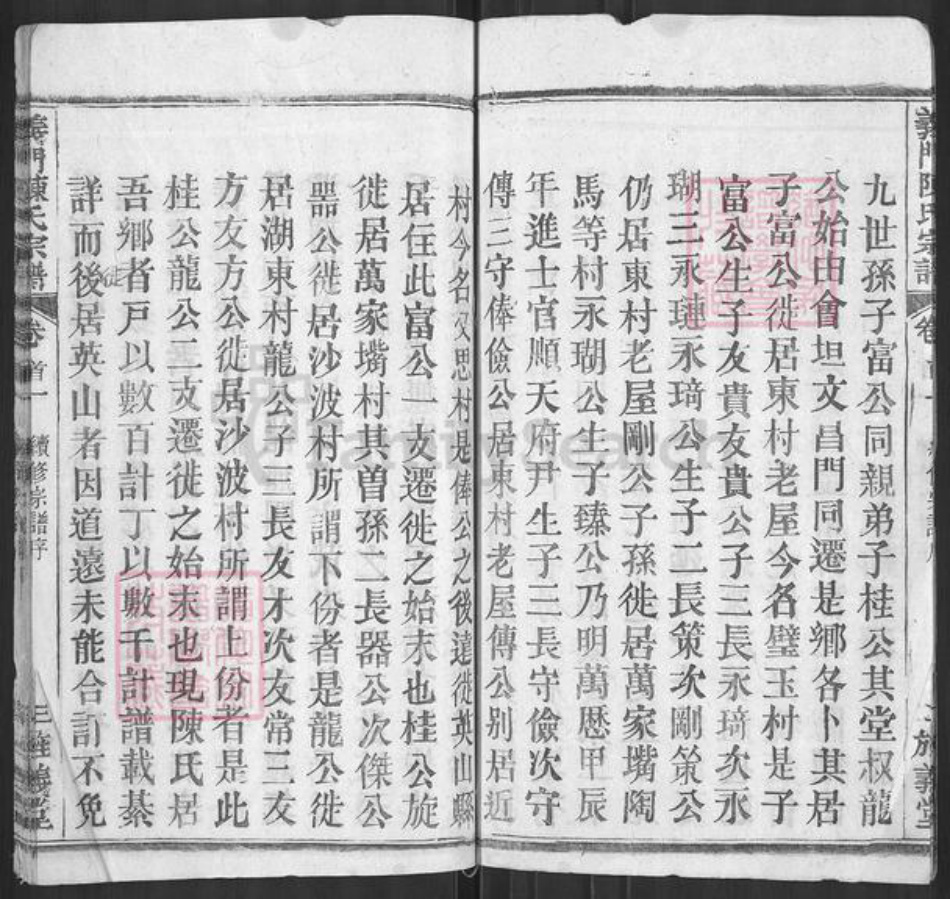 九世孫子富公同親弟子桂公其堂叔龍
公始由會坦文昌門同遷是鄉各卜其居
子富公徙居東村老屋今名璧玉村是子
富公生子友貴友貴公子三長永琦次永
瑚三永璉永琦公生子二長策次剛策公
仍居東村老屋剛公子孫徙居萬家嘴陶
馬等村永瑚公生子臻公乃明萬厯甲辰
年進士官順天府尹生子三長守儉次守
傳三守俸儉公居東村老屋傳公别居近
村今名父思村是俸公之後遠徙英山縣
居住此富公一支遷徙之始末也桂公旋
徙居萬家嘴村其曽孫二長器公次傑公
噐公徙居沙波村所謂下份者是龍公徙
居湖東村龍公子三長友才次友常三友
方友方公徙居沙波村所謂上份者是此
桂公龍公二支遷徙之始末也現陳氏居
吾鄉者戸以數百計丁以數千計譜載綦
詳而後徙居英山者因道遠未能合訂不免
義門陳氏宗譜
卷首一
續修宗譜序
三
旌義堂
Family Search